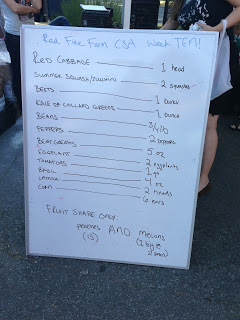 Red Fire Farm CSA Week TEN!
RED CABBAGE 1 head
SUMMER SQUASH/ZUCCHINI 2 squashes
BEETS 1 bunch
KALE OR COLLARD GREENS 1 bunch
BEANS 3/4 lb
PEPPERS 2 peppers
BEET GREENS 5 oz
EGGPLANT 2 eggplants
TOMATOES 1 qt
BASIL 4 oz
LETTUCE 2 heads
CORN 6 ears
FRUIT SHARE ONLY:
peaches AND melons
(15) (1 big or
2 small)